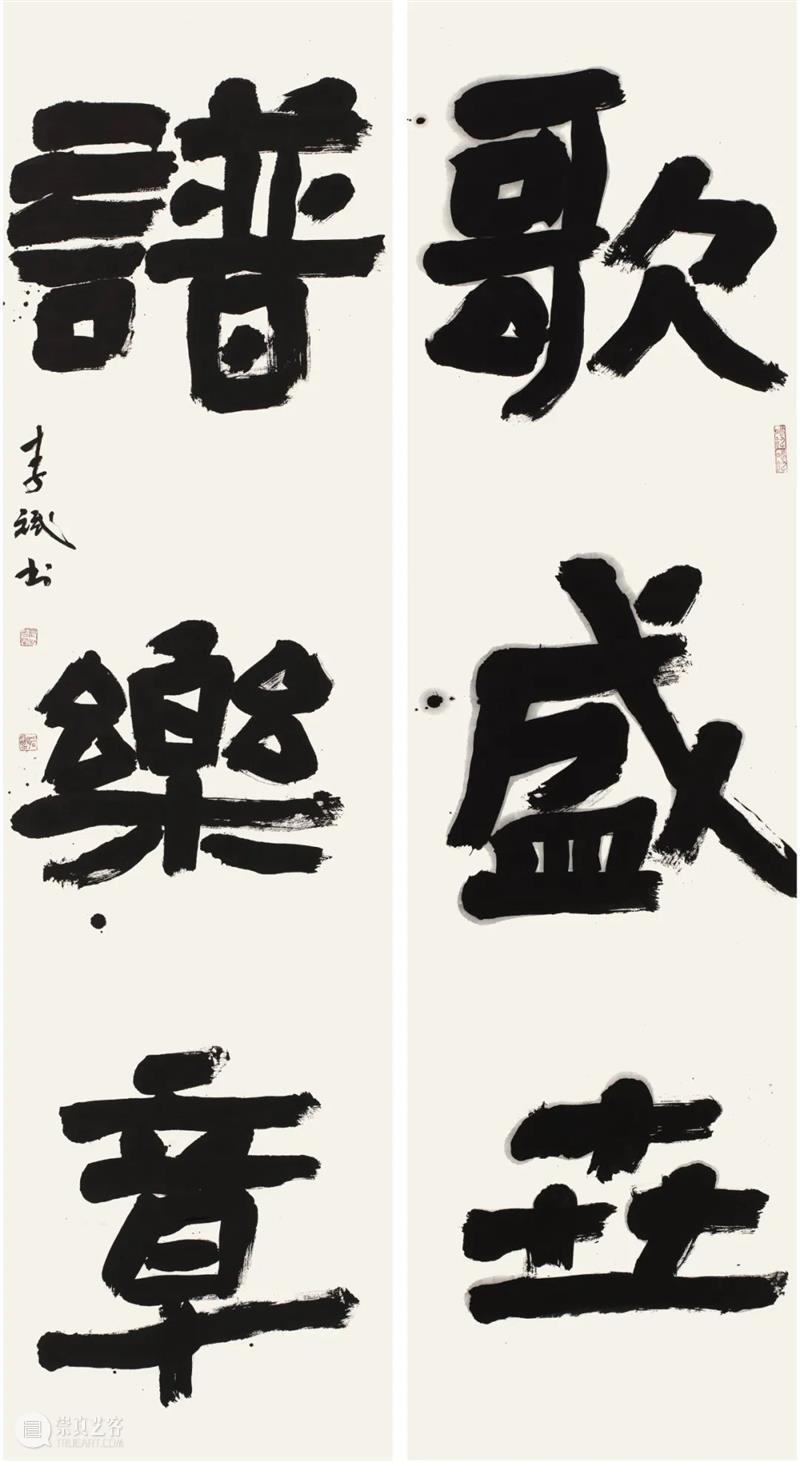 歌盛世
譜樂章
李斌书
崇真艺客
TRUEART.COM